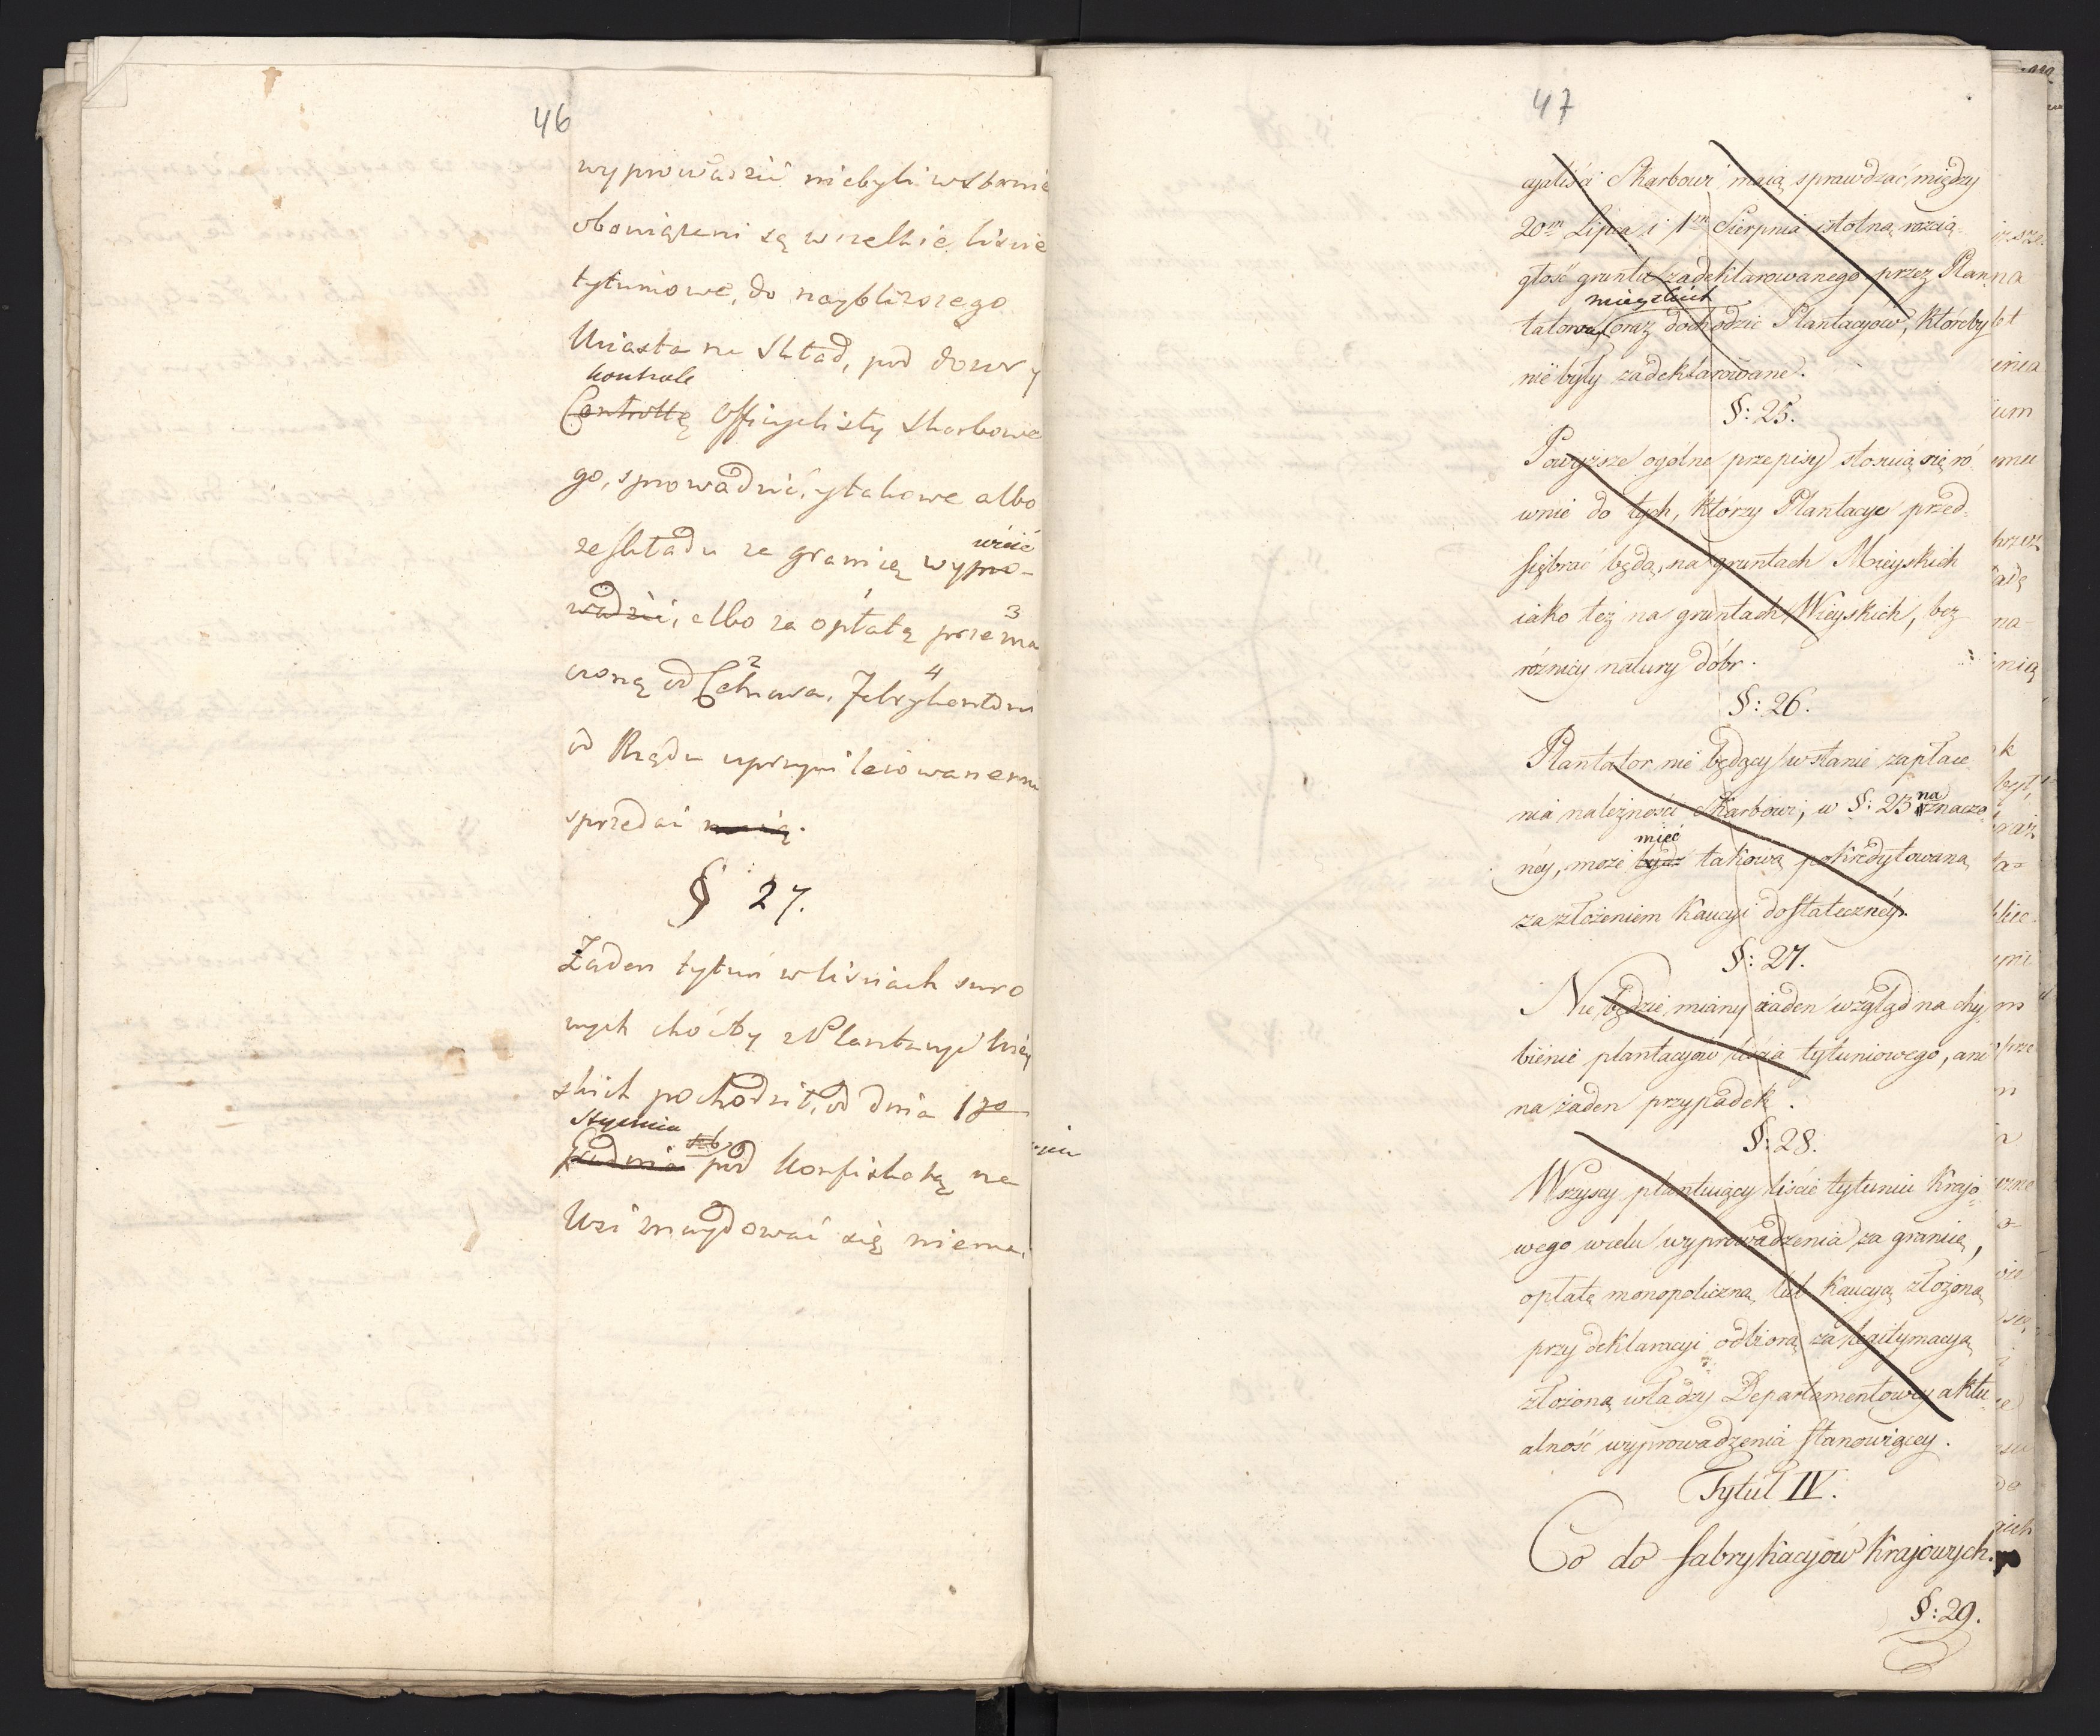 46
wyprowadzić niebyli wstanie
obowiązani są wszelkie liście
tytuniowe, do naybliższego
Miasta na Skład, pod dozor y
kontrole
Controllę Officyalisty Skarbowe
go, sprowadzić, y takowe albo
wieść
ze składu za granicę wypro-
wadzić, albo za opłatą przezna 3
czoną od Cetnara 2, Fabrykantom 4
od Rządu uprzywileiowanemu
sprzedać maią.
§ 27.
Żaden tytuń w liściach suro
wych choćby z Plantacyi Miey
skich pochodził, od dnia 1go
Stycznia
Grudnia pod konfiskatą na
Wsi znaydować się niema.
47
cyaliści Skarbowi maią sprawdzać między
20m Lipca i 1m Sierpnia istotną rozcią-
głość gruntu zadeklarowanego przez Plan-
mieyskich
tatorów, oraz dochodzić Plantacyów, któreby
nie były zadeklarowane.
§: 25.
Powyższe ogólne przepisy stosuią się ró-
wnie do tych, którzy Plantacye przed-
sięбrać będą, na gruntach Mieyskich
iako też na gruntach Wieyskich, bez
różnicy natury dóbr.
§: 26.
Plantator nie będący w stanie zapłace
nia należności Skarbowi, w §: 23 naznaczo
mieć
néy, może bydź takową pokredytowaną
za złożeniem Kaucyi dostatecznéy.
§: 27.
Nie będzie miany żaden wzgląd na chy
bienie plantacyów liścia tytuniowego, ani
na żaden przypadek.
§: 28.
Wszyscy plantuiący liście tytuniu Krajo-
wego wcelu wyprowadzenia za granicę,
opłatę monopoliczną lub Kaucyą złożoną
przy deklaracyi odbiorą za legitymacyą
złożoną władzy Departamentowey aktu-
alność wyprowadzenia stanowiącey.
Tytuł IV.
Co do fabrykacyów Krajowych.
§: 29.